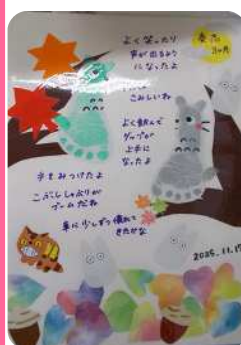 よく笑ったり
声が出るよう
になったよ
3ヶ月
よく飲んで
ゲップが
上手に
なったよ
手をみつけたよ
こぶししゃぶりが
ブームだね
車に少しずつ慣れて
きたかな
2025.11.17